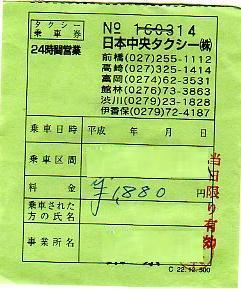 タクシー
乗車券
24時間営業
№ 160314
日本中央タクシー㈱
前橋(027)255-1112
高崎(027)325-1414
富岡(0274)62-3531
館林(0276)73-3863
渋川(0279)23-1828
伊香保(0279)72-4187
乗車日時 平成 年 月 日
乗車区間
料金 ¥1,880 円
乗車された
方の氏名
事業所名
当日限り有効
C 22.12.500